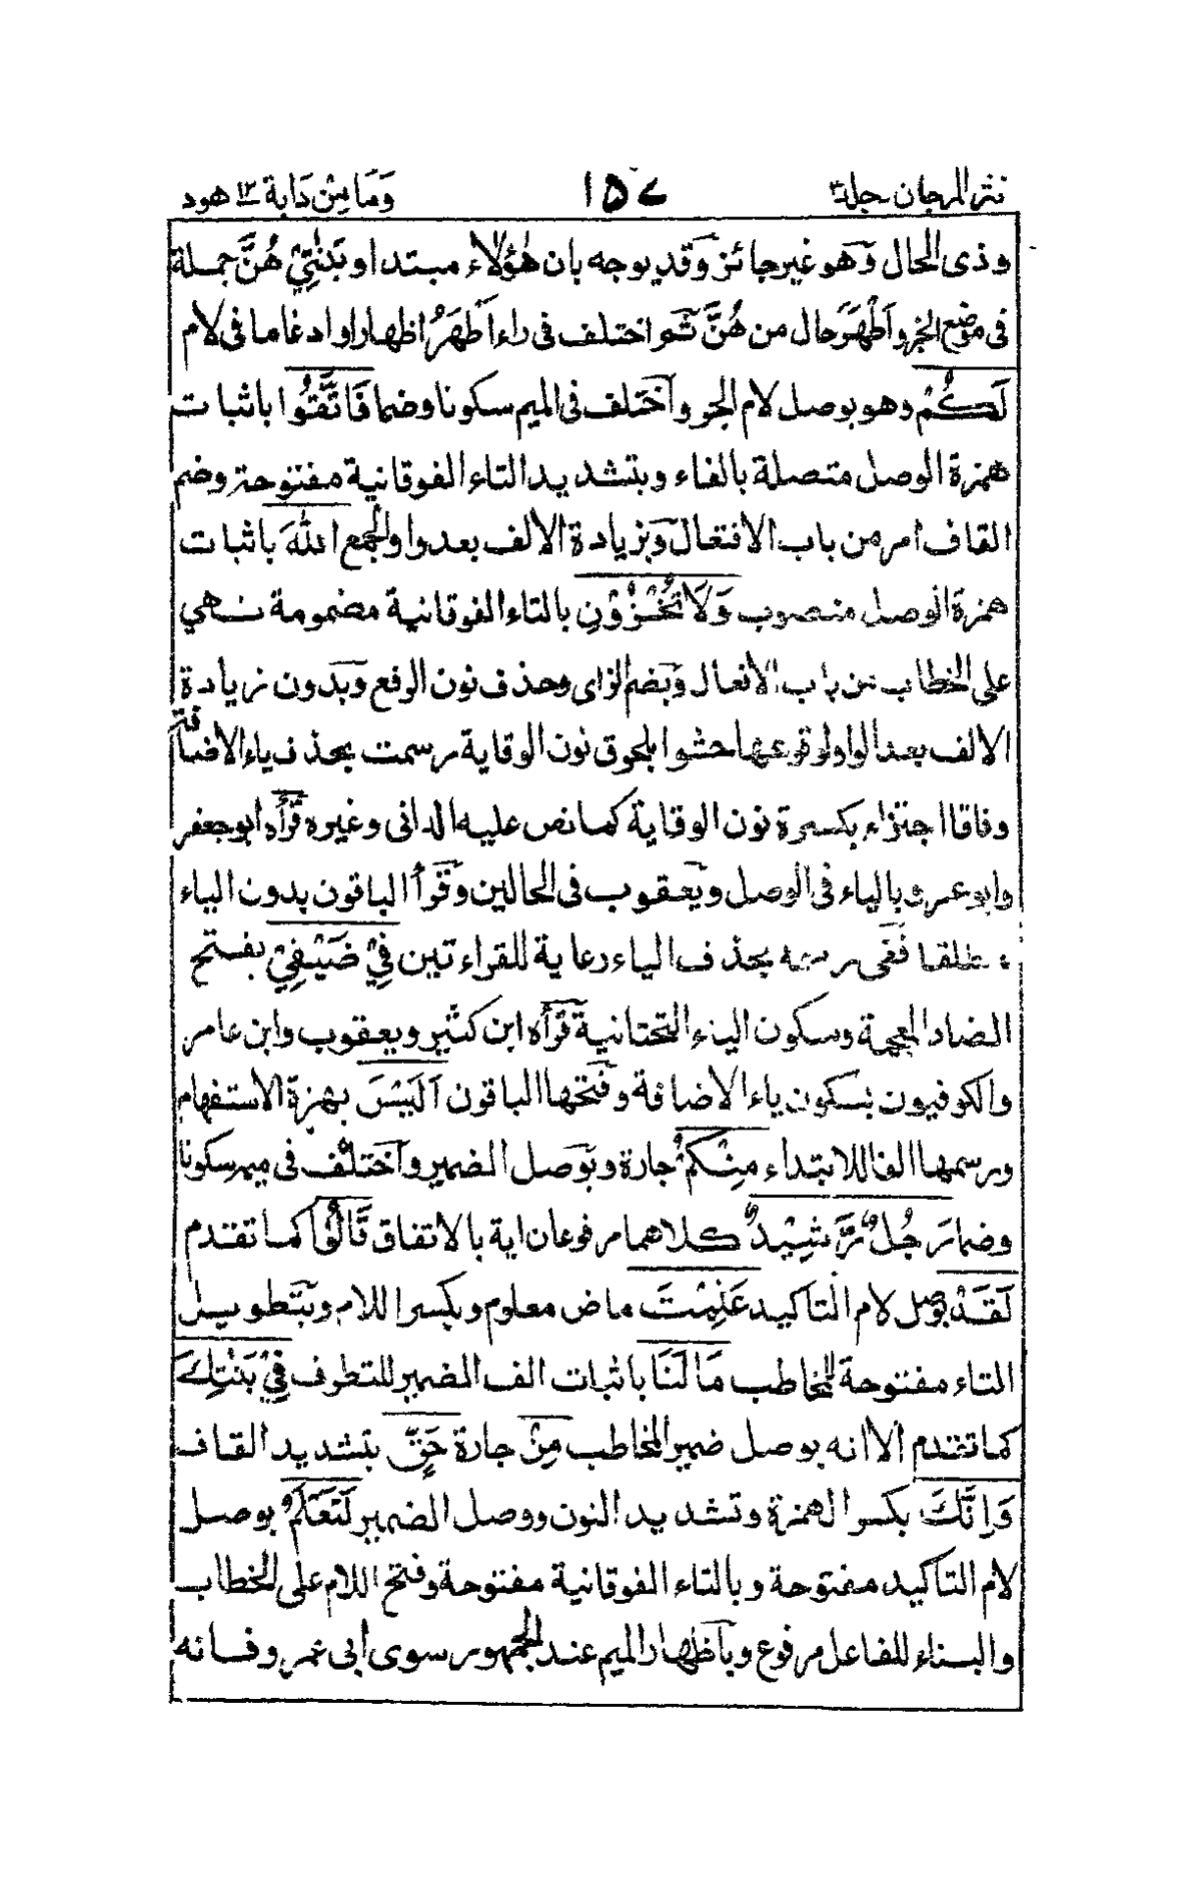 نثر المرجان جلد٣ ١٥٧ وَمَا مِنْ دَابة ١٢ هود
وذى الحال وَهو غير جائز وَقد يوجه بان هٰؤلَاء مبتدا وبَنٰتِيْ هُنَّ جملة
فى موضع الخبر واَطْهَرَ حال من هُنَّ ثم اختلف فى راء اَطْهَرُ اظهارا وادغاما فى لام
لَكُمْ وهو بوصل لام الجر واختلف فى الميم سكونا وضما فَاتَّقُوا باثبات
همزة الوصل متصلة بالفاء وبتشديد التاء الفوقانية مفتوحة وضم
القاف امر من باب الافتعال وبزيادة الالف بعد واو الجمع اللهَ باثبات
همزة الوصل منصوب وَلَا تُخْزُوْنِ بالتاء الفوقانية مضمومة نهي
على الخطاب من باب الافعال وبضم الزاى وحذف نون الرفع وبدون زيادة
الالف بعد الواو لوقوعها حشوا بلحوق نون الوقاية رسمت بحذف ياء الاضافة
وفاقا اجتزاء بكسرة نون الوقاية كما نص عليه الدانى وغيره قرأه ابوجعفر
وابوعمرو بالياء فى الوصل ويعقوب فى الحالين وقرأ الباقون بدون الياء
مطلقا ففى رسمه بحذف الياء رعاية للقراءتين فِيْ ضَيْفِيْ بفتح
الضاد المعجمة وسكون الياء التحتانية قرأه ابن كثير ويعقوب وابن عامر
والكوفيون بسكون ياء الاضافة وفتحها الباقون اَلَيْسَ بهمزة الاستفهام
ورسمها الفا للابتداء مِنْكُمْ جارة وبوصل الضمير واختلف فى ميمه سكونا
وضما رَجُلٌ رَّشِيْدٌ كلاهما مرفوعان اية بالاتفاق قَالُوْا كما تقدم
لَقَدْ بوصل لام التاكيد عَلِمْتَ ماض معلوم وبكسر اللام وبتطويل
التاء مفتوحة للمخاطب مَا لَنَا باثبات الف الضمير للتطرف فِيْ بَنٰتِكَ
كما تقدم الا انه بوصل ضمير المخاطب مِنْ جارة حَقٍّ بتشديد القاف
وَاِنَّكَ بكسر الهمزة وتشديد النون ووصل الضمير لَتَعْلَمُ بوصل
لام التاكيد مفتوحة وبالتاء الفوقانية مفتوحة وفتح اللام على الخطاب
والبناء للفاعل مرفوع وباظهار الميم عند الجمهور سوى ابى عمرو فانه